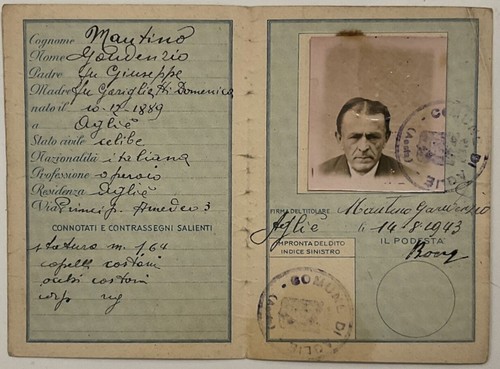 Cognome Mautino
Nome Gaudenzio
Padre fu Giuseppe
Madre fu Gariglietti Domenica
nato il 10-12-1889
a Agliè
Stato civile celibe
Nazionalità italiana
Professione operaio
Residenza Agliè
Via Princip. Amedeo 3
CONNOTATI E CONTRASSEGNI SALIENTI
statura m. 1,64
capelli castani
occhi castani
corp.
COMUNE DI AGLIE
(Aosta)
FIRMA DEL TITOLARE Mautino Gaudenzio
Agliè li 14-8-1943
IMPRONTA DEL DITO
INDICE SINISTRO
IL PODESTA'
COMUNE DI AGLIE